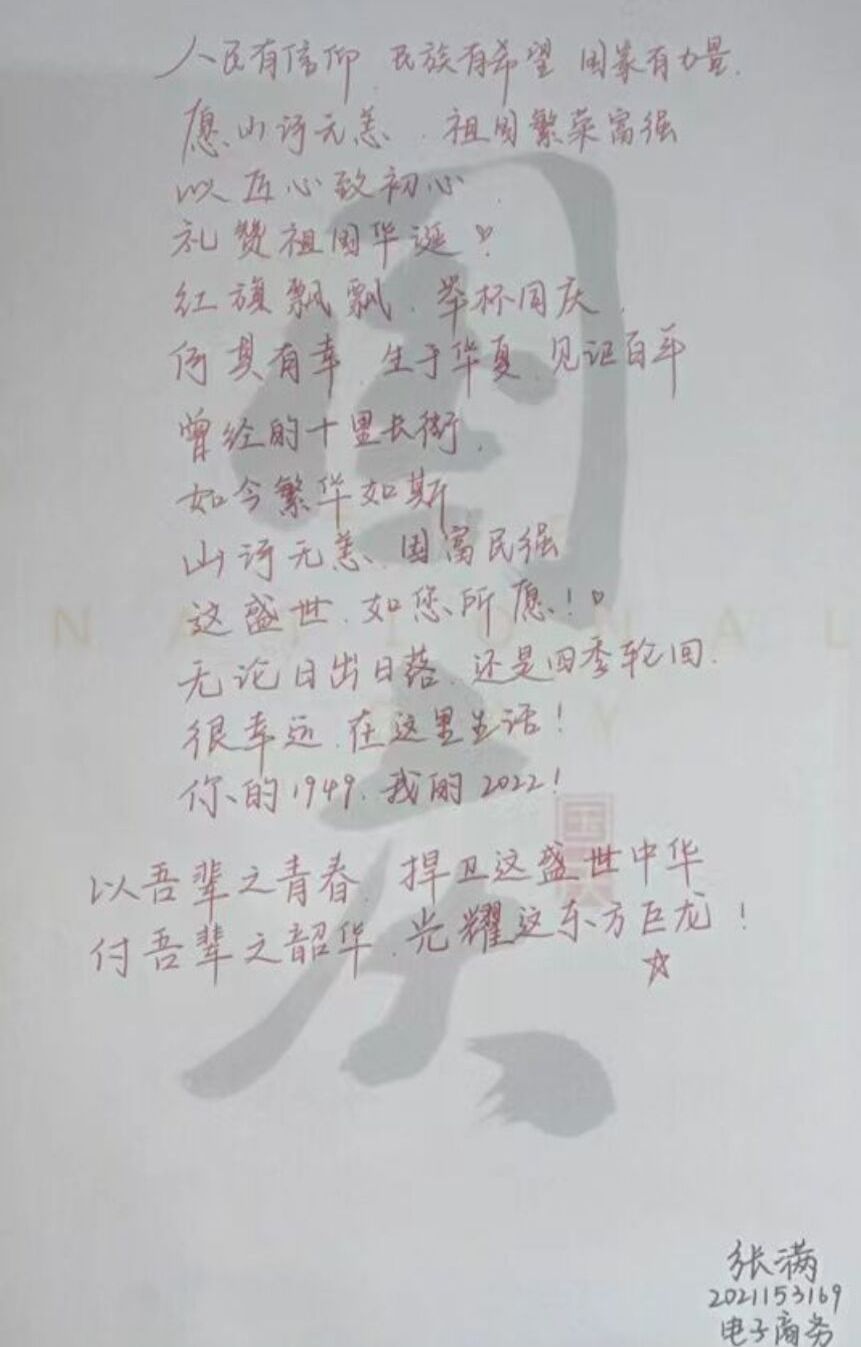 人民有信仰 民族有希望 国家有力量.
愿山河无恙. 祖国繁荣富强
以匠心致初心.
礼赞祖国华诞♡
红旗飘飘. 举杯同庆.
何其有幸. 生于华夏. 见证百年
曾经的十里长街.
如今繁华如斯
山河无恙. 国富民强
这盛世. 如您所愿!♡
NATIONAL
无论日出日落. 还是四季轮回.
很幸运. 在这里生活!
你的1949. 我的2022!
以吾辈之青春. 捍卫这盛世中华
付吾辈之韶华. 光耀这东方巨龙!
☆
国庆
张满
2021153169
电子商务